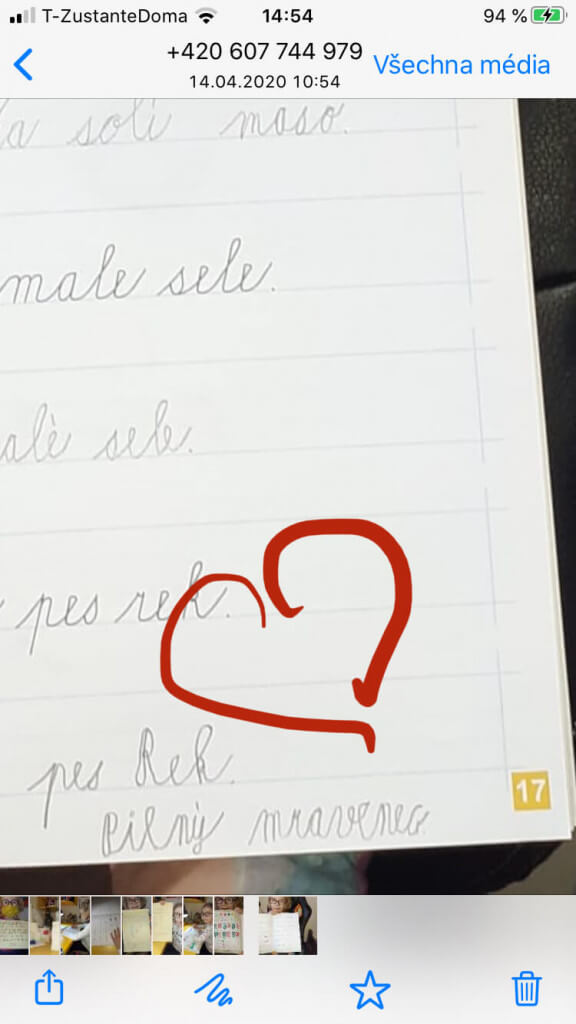 T-ZustanteDoma 14:54 94 %
+420 607 744 979
Všechna média
14.04.2020 10:54
solí maso.
male sele.
alè sele.
pes rek.
pes Rek.
17
Pilný mravenec.